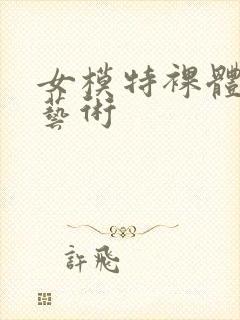 女模特裸體
藝術
許飛